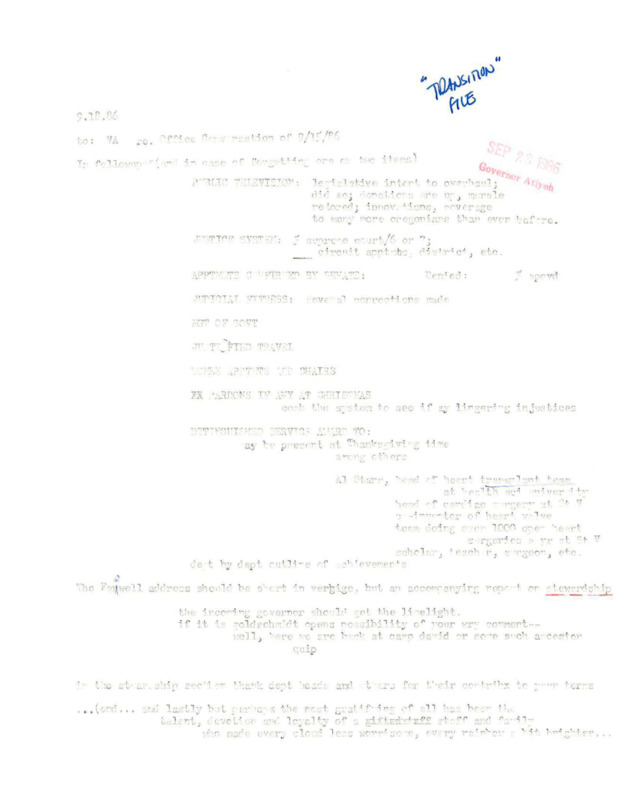 "TRANSITION"
FILE
9.18.86
to: VA re. Office Conversation of 9/15/86
SEP 23 1986
Governor Atiyeh
In followup (and in case of forgetting one or two items)
PUBLIC TELEVISION: legislative intent to overhaul;
did so; donations are up, morale
restored; innovations, coverage
to many more oregonians than ever before.
JUSTICE SYSTEM: # supreme court/6 or 7;
___ circuit apptmts, district, etc.
APPTMENTS CONFIRMED BY SENATE: Denied: % apovd
JUDICIAL FITNESS: several corrections made
MGT OF GOVT
JUSTIFIED TRAVEL
WOMEN APPTMTS AND CHAIRS
EX PARDONS IF ANY AT CHRISTMAS
comb the system to see if ay lingering injustices
DISTINGUISHED SERVICE AWARD TO:
ay be present at Thanksgiving time
among others
Al Starr, head of heart transplant team
at health sci university
head of cardiac surgery at St V
co-inventor of heart valve
team doing over 1000 open heart
surgeries a yr at St V
scholar, teach r, surgeon, etc.
dept by dept outline of achievements
The Farewell address should be short in verbiage, but an accompanying report on stewardship
the incoming governor should get the limelight.
if it is goldschmidt opens possibility of your wry comment--
well, here we are back at camp david or some such ancestor
quip
in the stewardship section thank dept heads and others for their contribx to your terms
...(and... and lastly but perhaps the most gratifying of all has been the
talent, devotion and loyalty of a giftedstaff staff and family
who made every cloud less worrisome, every rainbow a bit brighter...